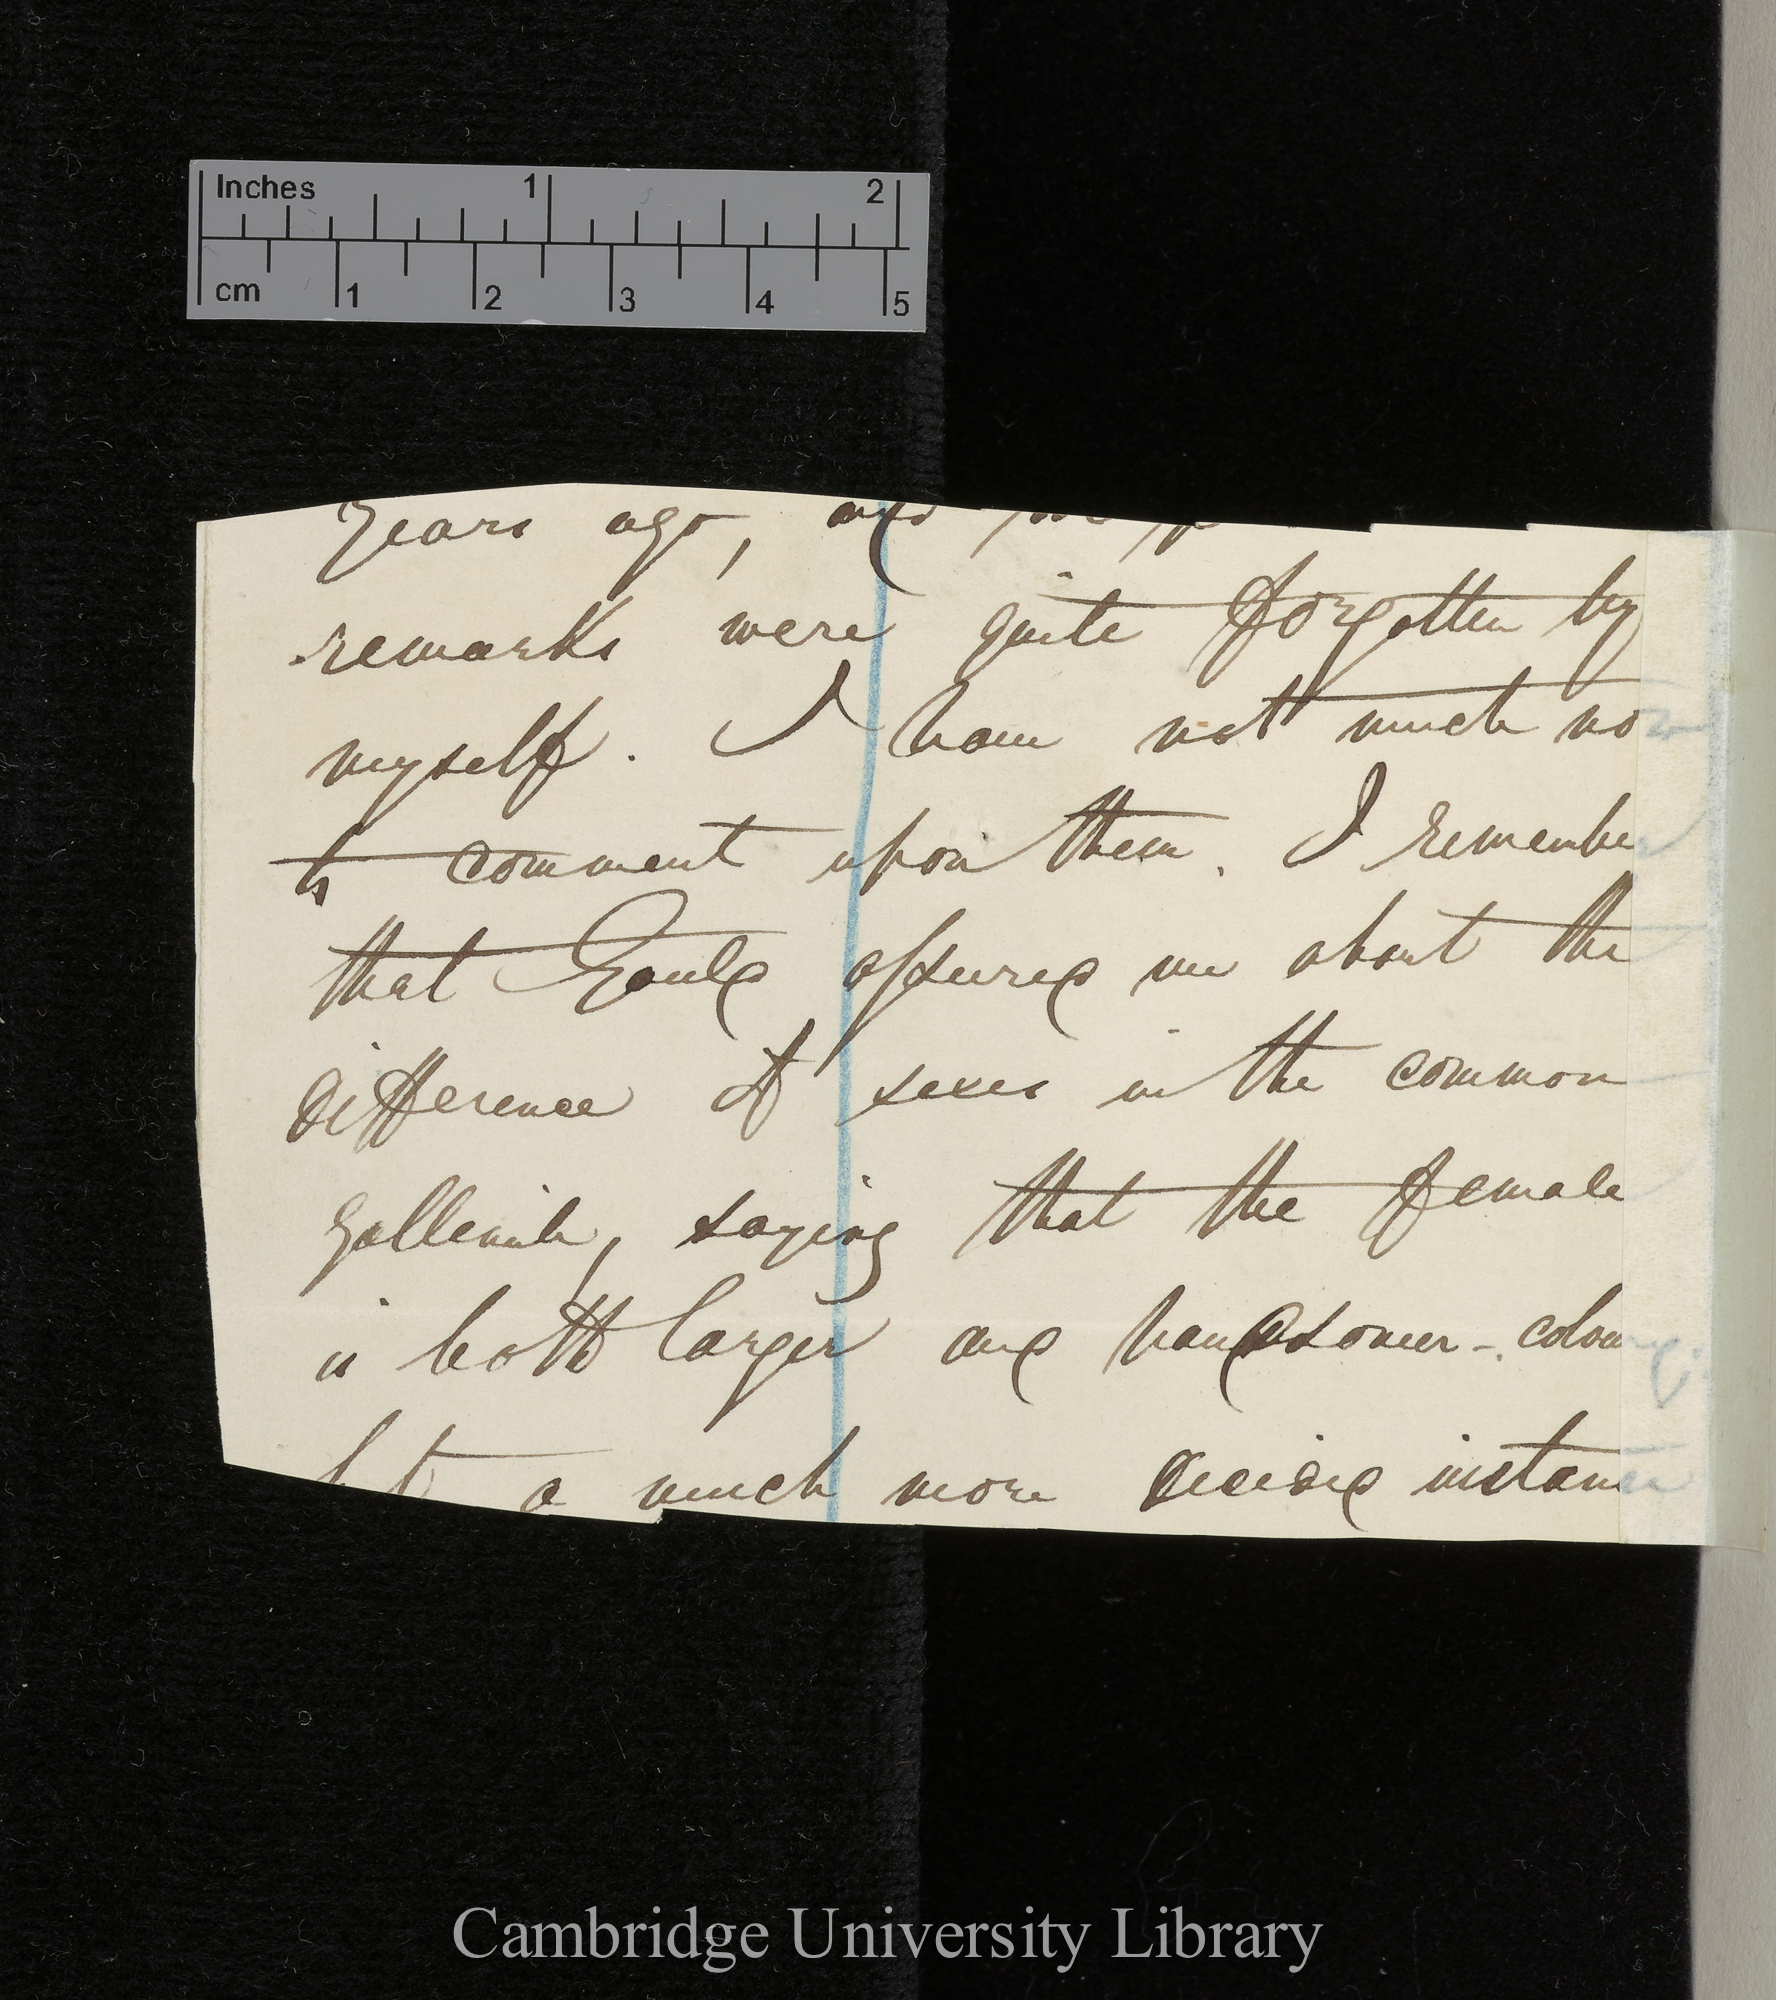 Inches 1 2
cm 1 2 3 4 5
years ago, and
remarks were quite forgotten by
myself. I have not much no
to comment upon them. I remembe
that Gould assured me about the
difference of sexes in the common
gallinule, saying that the female
is both larger and handsomer-colou
but a much more decided instan
Cambridge University Library